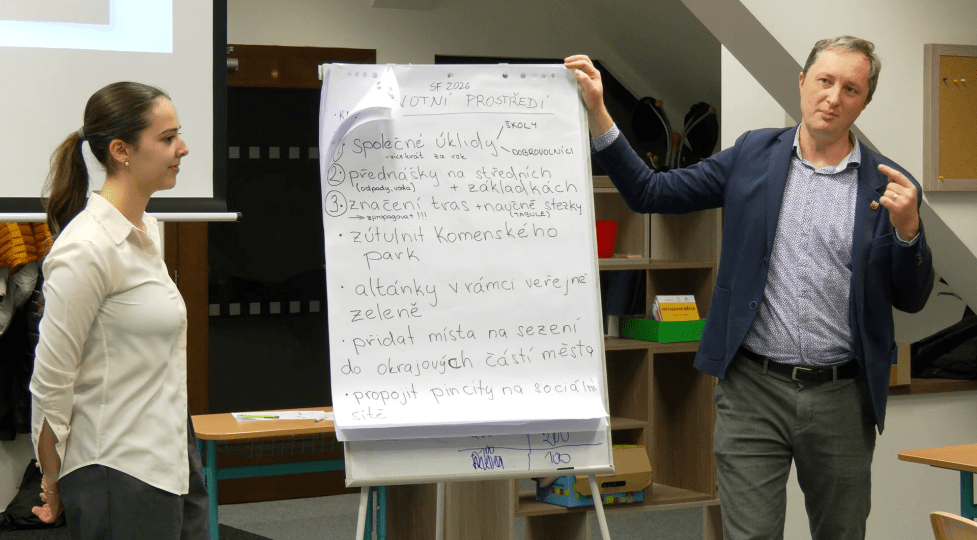 SF 2026
VOTNÍ PROSTŘEDÍ
společné úklidy
ŠKOLY
DOBROVOLNÍCI
- vícekrát za rok
2. přednášky na středních
(odpady, voda) + základkách
3. značení tras + naučné stezky
→ zpropagovat !!! (TABULE)
• zútulnit Komenského
park
• altánky v rámci veřejné
zeleně
• přidat místa na sezení
do okrajových částí města
• propojit pincity na sociální
sítě
200
100